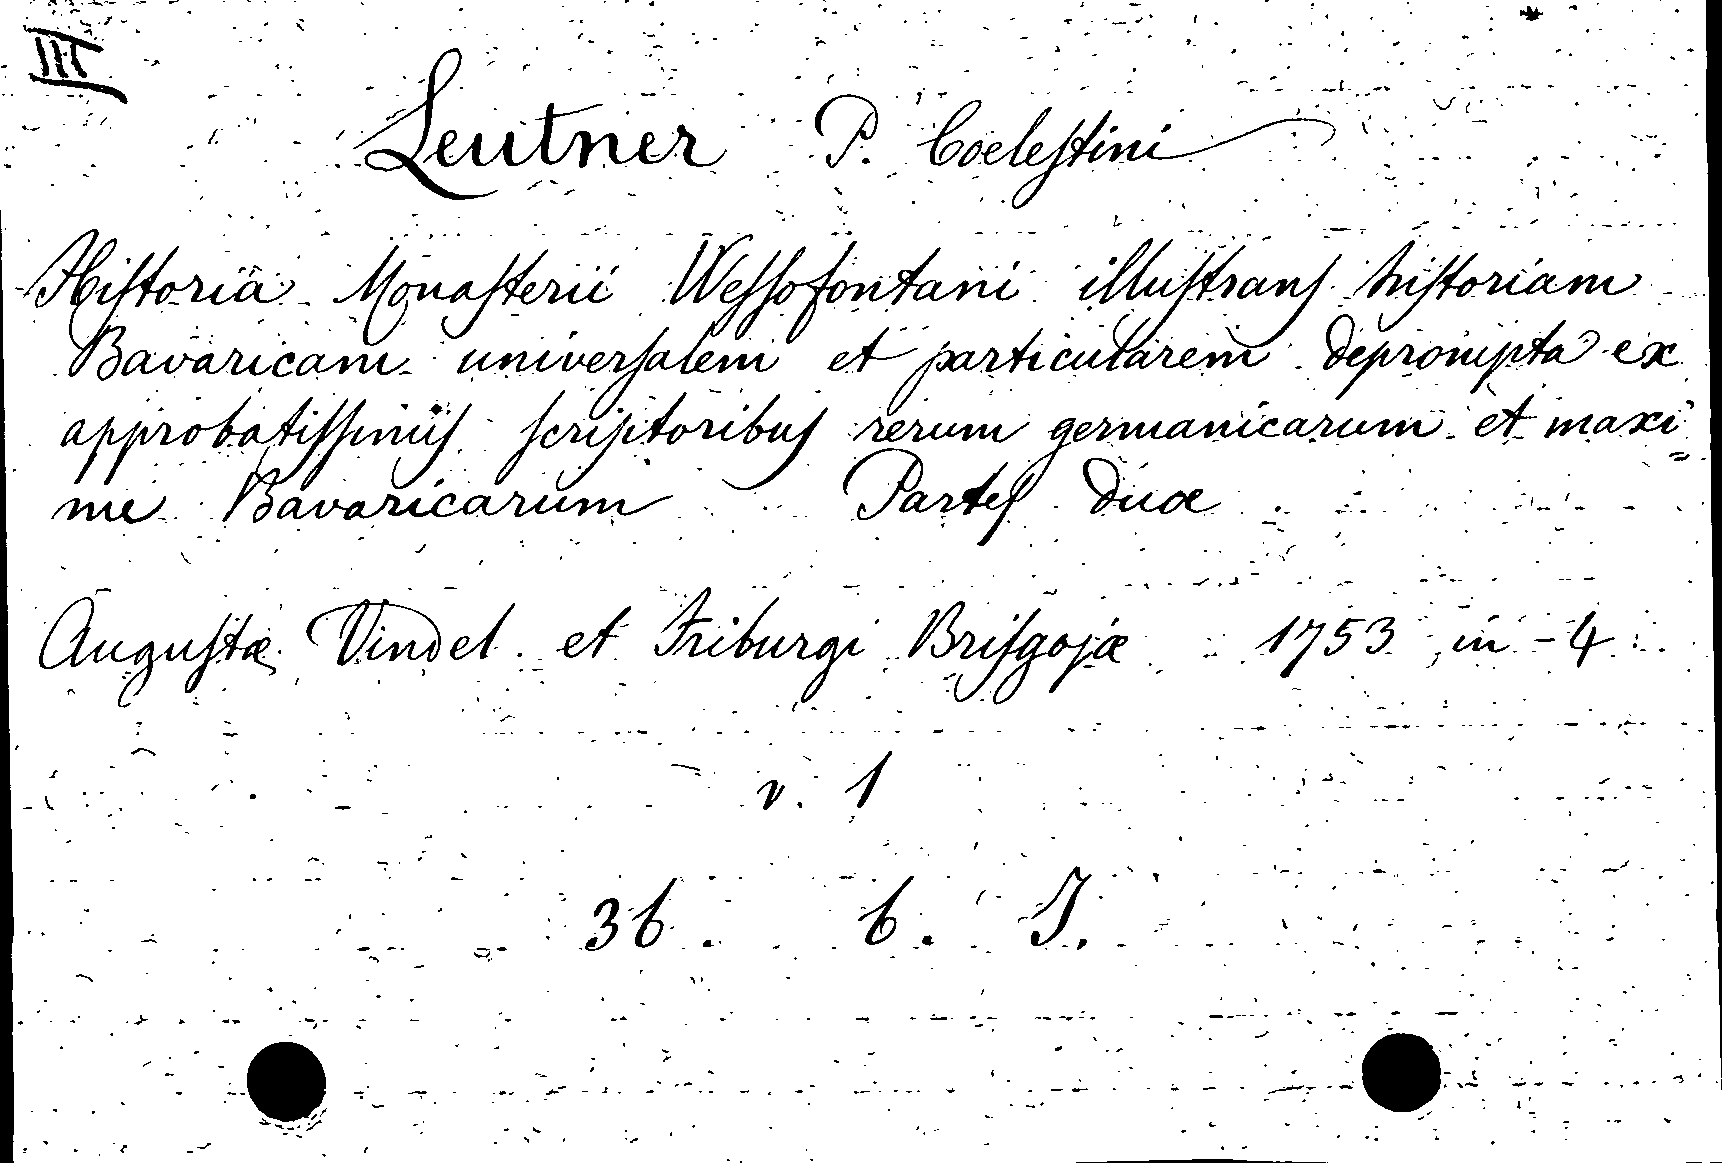 III
Leutner P. Coelestini
Historia Monasterii Wessofontani illustrans historiam
Bavaricam universalem et particularem deprompta ex
approbatissimis scriptoribus rerum germanicarum et maxi
me Bavaricarum Partes duæ
Augustæ Vindel. et Friburgi Brisgojæ 1753 in-4
v. 1
36. 6. J.